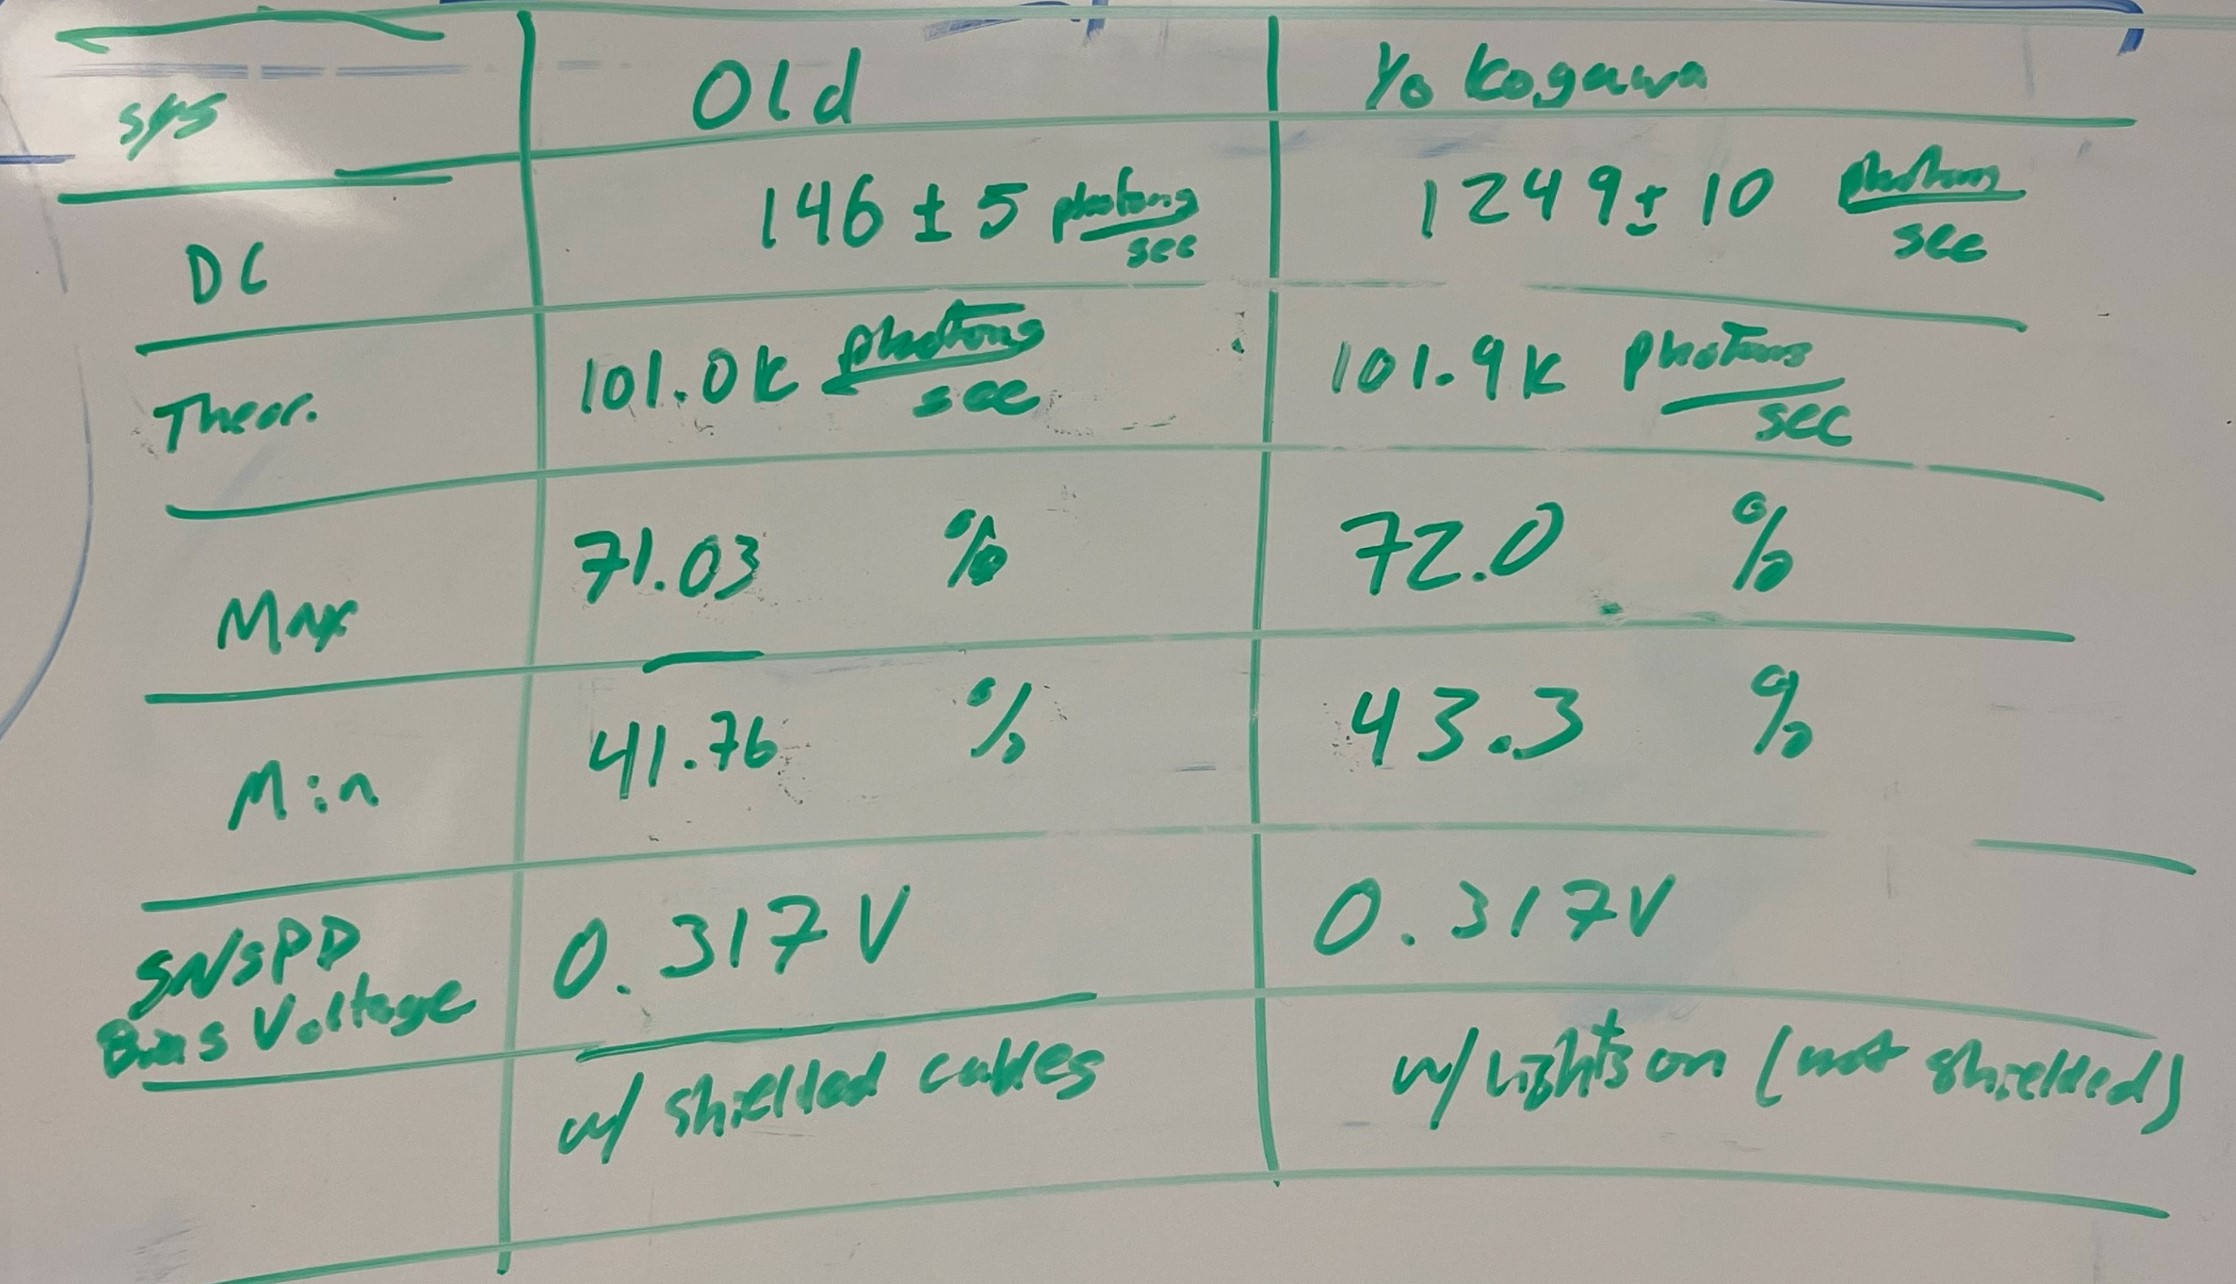 sys Old Yokogawa
DC 146 ± 5 photons/sec 1249 ± 10 photons/sec
Theor. 101.0k photons/sec 101.9k photons/sec
Max 71.03 % 72.0 %
Min 41.76 % 43.3 %
SNSPD
Bias Voltage 0.317 V 0.317V
w/ shielded cables w/ lights on (not shielded)